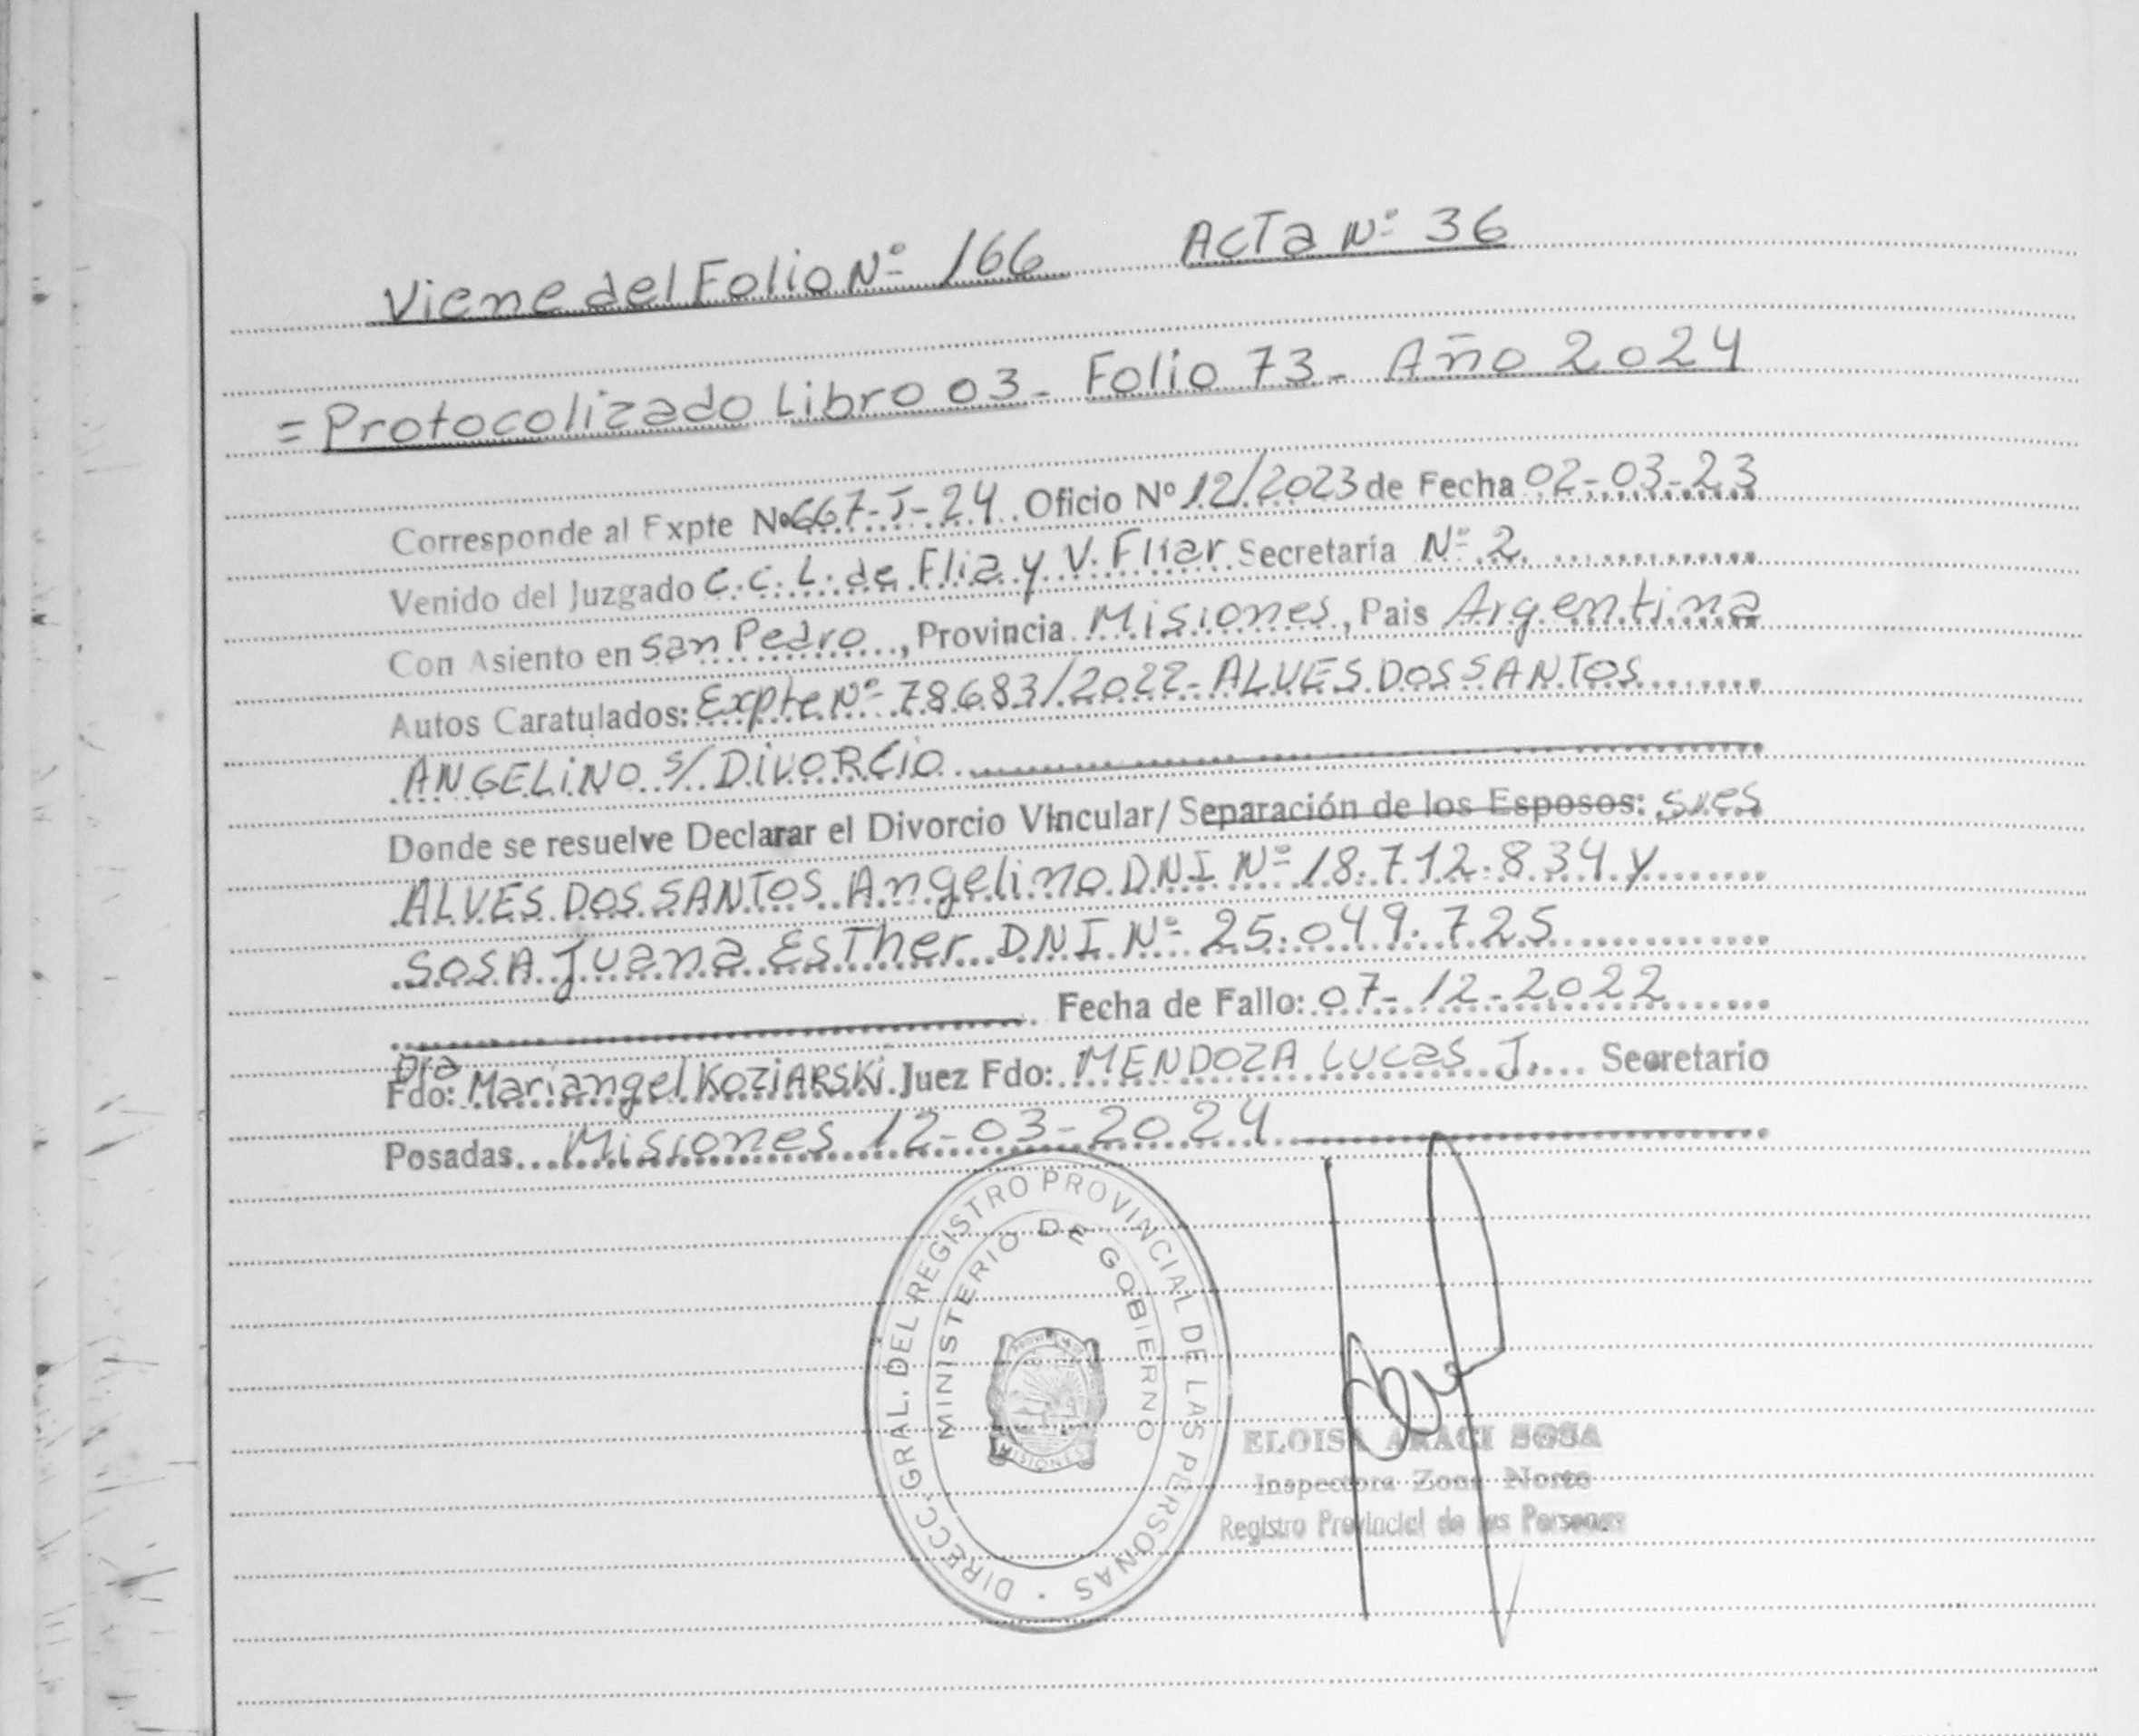 Viene del Folio Nº 166 Acta Nº 36
= Protocolizado Libro 03 - Folio 73 - Año 2024
Corresponde al Expte Nº 667-J-24 Oficio Nº 12/2023 de Fecha 02-03-23
Venido del Juzgado C.C.L. de Flia y V. Fliar Secretaría Nº 2
Con Asiento en San Pedro, Provincia Misiones, Pais Argentina
Autos Caratulados: Expte Nº 78683/2022 - ALVES DOS SANTOS
ANGELINO s/ DIVORCIO
Donde se resuelve Declarar el Divorcio Vincular/ Separación de los Esposos: sres
ALVES DOS SANTOS Angelino DNI Nº 18.712.834 y
SOSA Juana Esther DNI Nº 25.049.725
Fecha de Fallo: 07-12-2022
Dra
Fdo: Mariangel KOZIARSKi Juez Fdo: MENDOZA Lucas J. Secretario
Posadas Misiones 12-03-2024
DIRECC. GRAL. DEL REGISTRO PROVINCIAL DE LAS PERSONAS
MINISTERIO DE GOBIERNO
MISIONES
ELOISA ARACI SOSA
Inspectora Zona Norte
Registro Provincial de las Personas